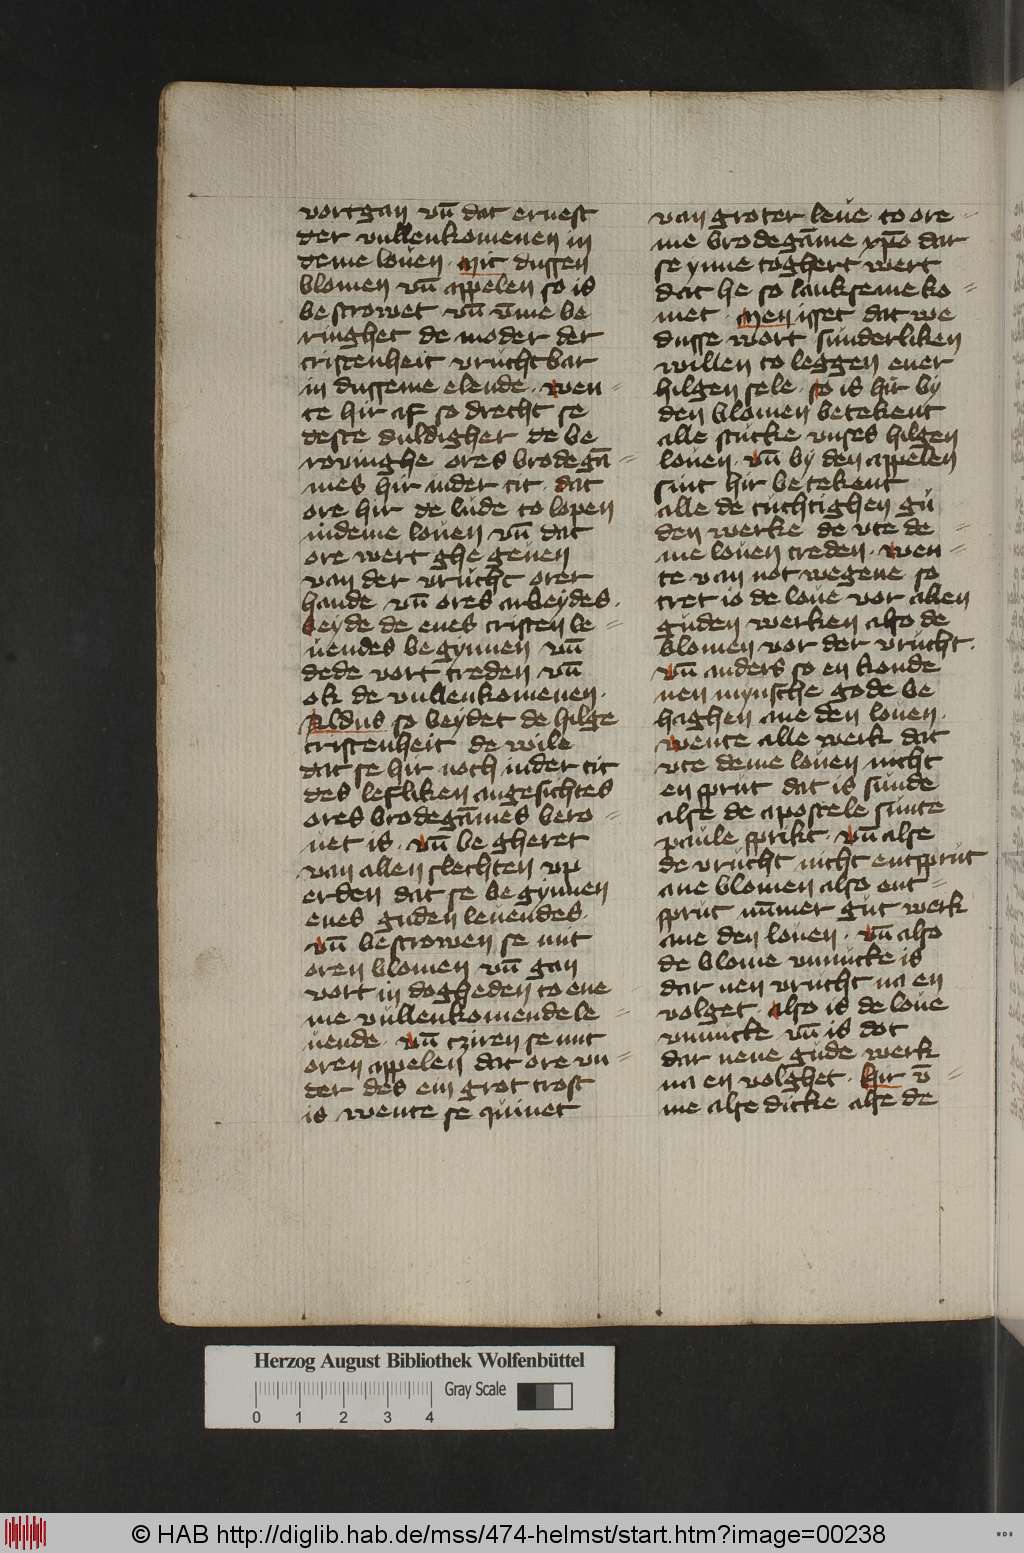 vortgan vn̄ dat ernest
der vullenkomenen in
deme louen · Mit dussen
blomen vn̄ appelen so is
bestrowet vn̄ v̄me be
ringhet de moder der
cristenheit vruchtbar
in dusseme elende · wen =
te hir af so drecht se
deste duldigher de be
rovinghe ores brodegā =
mes hir inder tit · dat
ore hir de lude to lopen
indeme louen vn̄ dat
ore wert ghe geuen
van der vrucht orer
hande vn̄ ores arbeydes ·
beyde de enes cristen le =
uendes begynnen vn̄
dede vort treden vn̄
ok de vullenkomenen ·
Aldus so beydet de hilge
cristenheit de wile
dat se hir noch inder tit
des lefliken angesichtes
ores brodegāmes bero =
uet is · vn̄ be gheret
van allen slechten vp
erden dat se begynnen
enes guden leuendes ·
vn̄ bestrowen se mit
oren blomen vn̄ gan
vort in dogheden to ene
me vullenkomende le =
uende · vn̄ cziren se mit
oren appelen dat ore vn =
der des ein grot trost
is wente se quinet
van groter leue to ore =
me brodegāme xp̄o dar
se ynne toghert wert
dat he so lanksemeko =
met · Men isset dat we
dusse wort sunderliken
willen to leggen ener
hilgen sele · so is hir by
den blomen betekent
alle stucke vnses hilgen
louen · vn̄ by den appelen
sint hir betekent
alle de tuchtighen gu
den werke de vte de =
me louen treden · wen =
te van not wegene so
tret io de loue vor allen
guden werken also de
blomen vor der vrucht ·
vn̄ anders so en konde
nen mynsche gode be
haghen ane den louen ·
wente alle werk dat
vte deme louen nicht
en sprut dat is sunde
alse de apostele sunte
paule sprikt · vn̄ alse
de vrucht nicht entsprut
ane blomen also ent =
sprut nūmer gut werk
ane den louen · vn̄ also
de blome vnnucke is
dar nen vrucht na en
volget · also is de loue
vnnucke vn̄ is dot
dar nene gude werk
na en volghet · hir v̄ =
me alse dicke alse de
Herzog August Bibliothek Wolfenbüttel
Gray Scale
0 1 2 3 4
© HAB http://diglib.hab.de/mss/474-helmst/start.htm?image=00238
WDB